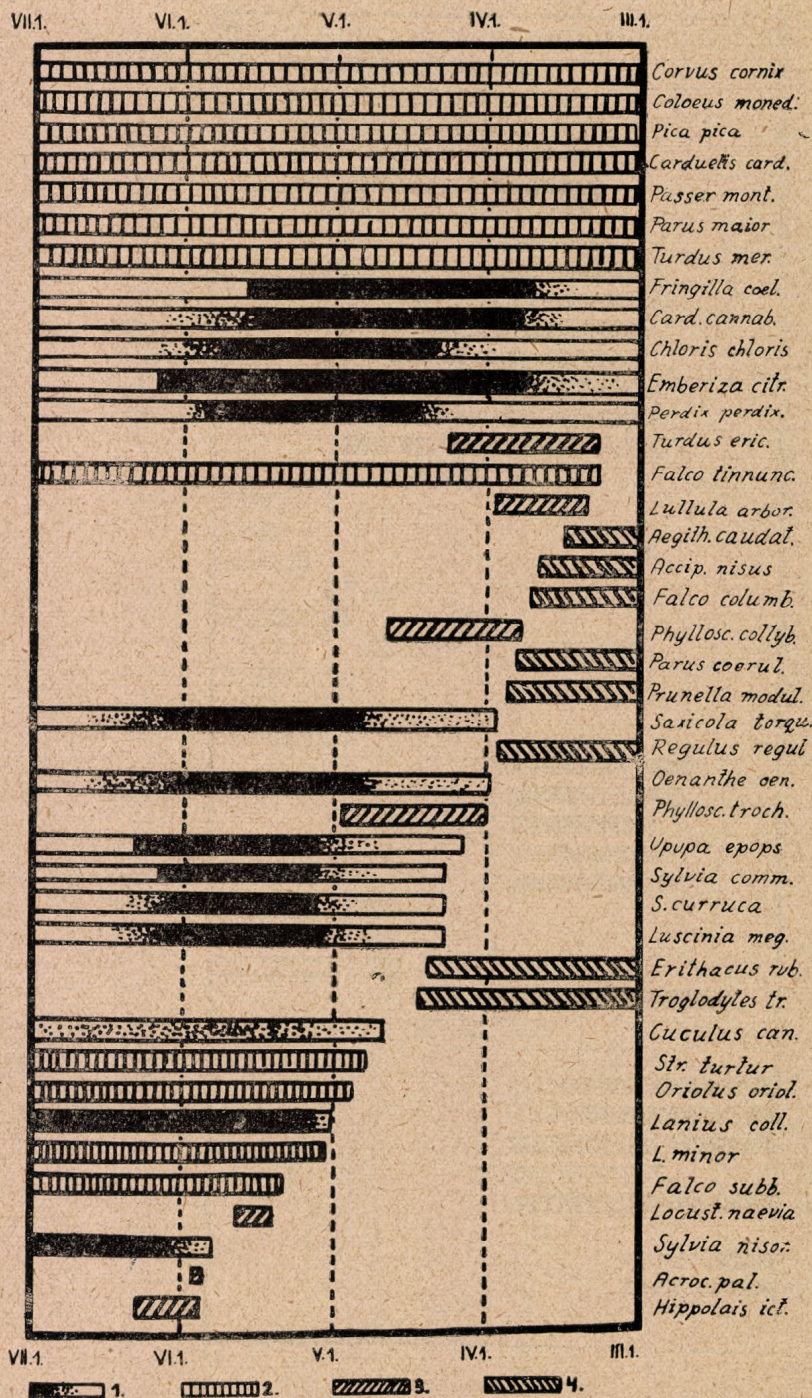 VII.1. VI.1. V.1. IV.1. III.1.
Corvus cornix
Coloeus moned.
Pica pica
Carduelis card.
Passer mont.
Parus maior
Turdus mer.
Fringilla coel.
Card. cannab.
Chloris chloris
Emberiza citr.
Perdix perdix.
Turdus eric.
Falco tinnunc.
Lullula arbor.
Aegith. caudat.
Accip. nisus
Falco columb.
Phyllosc. collyb.
Parus coerul.
Prunella modul.
Saxicola torqu.
Regulus regul
Oenanthe oen.
Phyllosc. troch.
Upupa epops
Sylvia comm.
S. curruca
Luscinia meg.
Erithacus rub.
Troglodytes tr.
Cuculus can.
Str. turtur
Oriolus oriol.
Lanius coll.
L. minor
Falco subb.
Locust. naevia
Sylvia nisor.
Acroc. pal.
Hippolais ict.
VII.1. VI.1. V.1. IV.1. III.1.
1. 2. 3. 4.